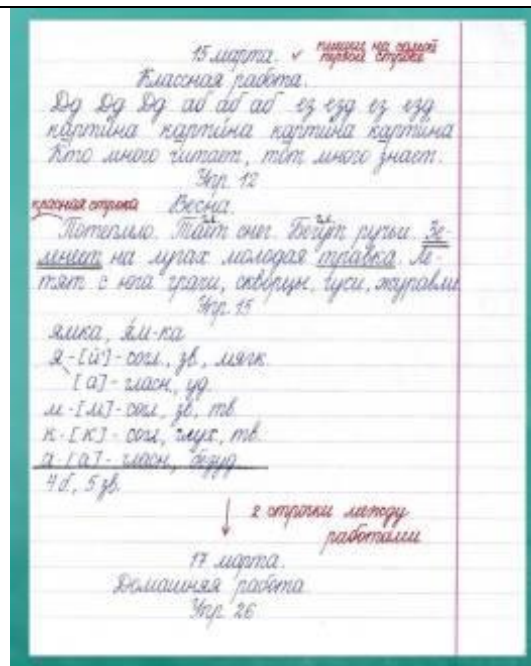 15 марта. ✓ пишем на самой
первой строке
Классная работа.
Дд Дд Дд аб аб аб ез езд ез езд
картина картина картина картина
Кто много читает, тот много знает.
Упр. 12
красная строка Весна.
Потеплело. Тает снег. Бегут ручьи. Зе-
ленеет на лугах молодая травка. Ле-
тят с юга грачи, скворцы, гуси, журавли
Упр. 15
ямка, я́м-ка
я-[й'] - согл., зв., мягк.
[а] - гласн., уд.
м-[м] - согл., зв., тв.
к-[к] - согл., глух., тв.
а-[а] - гласн., безуд.
4 б., 5 зв.
2 строчки между
работами
17 марта.
Домашняя работа
Упр. 26